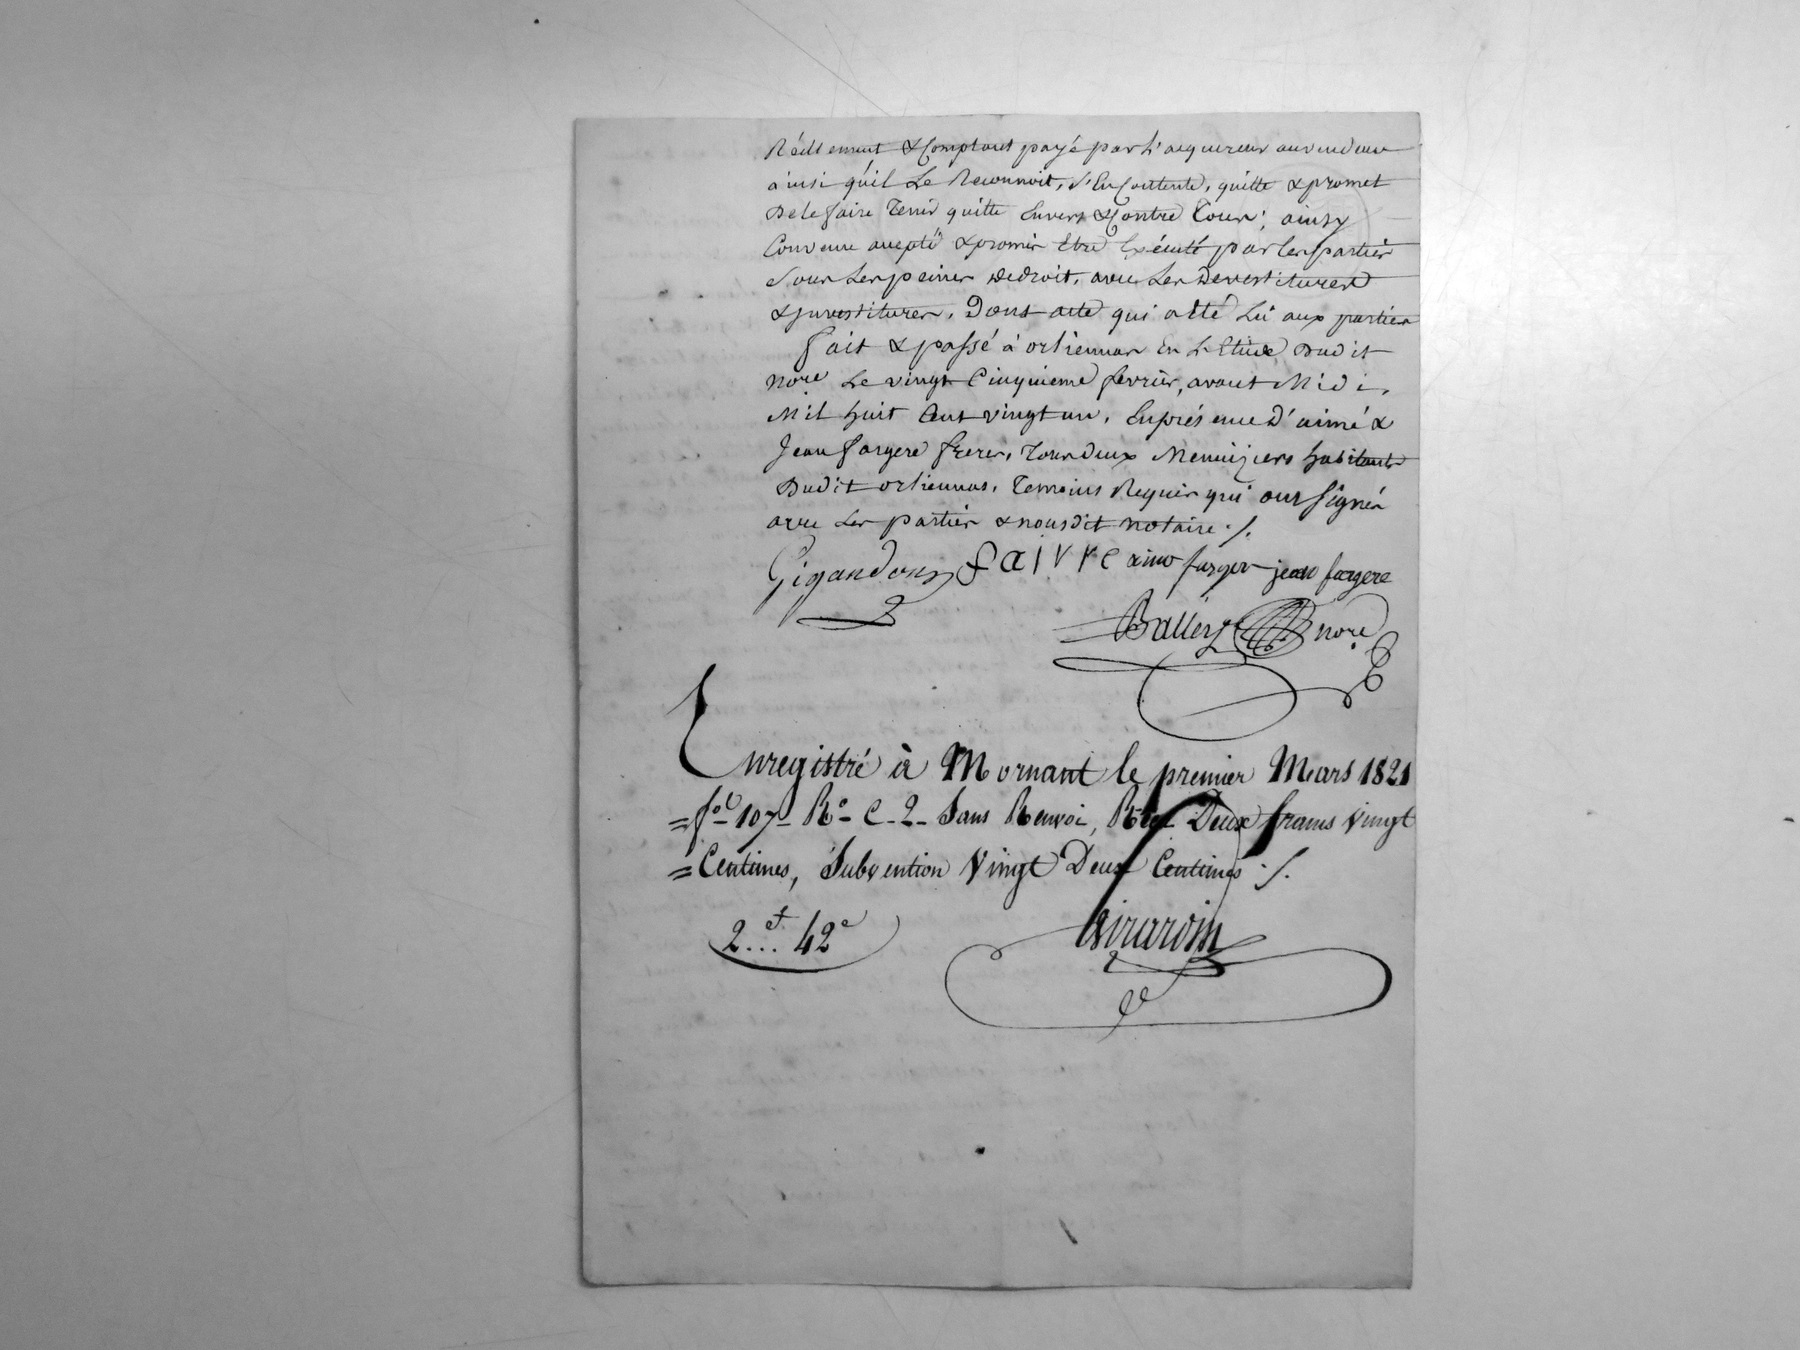 Réellement & Comptant payé par L'acquereur au vendeur
ainsi qu'il Le Reconnoit, S'En Contente, quitte & promet
De le faire Tenir quitte Envers & Contre Tous; ainsy
Convenu accepté & promis Etre Exécuté par les parties
Sous Les peines de droit, avec Les Devestitures
& investitures, Dont acte qui a été Lû aux parties
fait & passé à orliennas En L'Etude Dudit
Nore Le vingt Cinquieme fevrier, avant Midi,
Mil huit Cent vingt un, En présence D'aimé &
Jean fargere freres, Tous deux Menuiziers habitants
Dudit orliennas, Temoins Requis qui ont Signés
avec Les parties & nousdit notaire ./.
Gigandon faivre aimé farger jean fargere
Ballery nore
Enregistré à Mornant le premier Mars 1821
= fo 107 Ro C. 2 Sans Renvoi, Reçu Deux francs Vingt
= Centimes, Subvention Vingt Deux Centimes ./.
2 ... 42c
Girardin